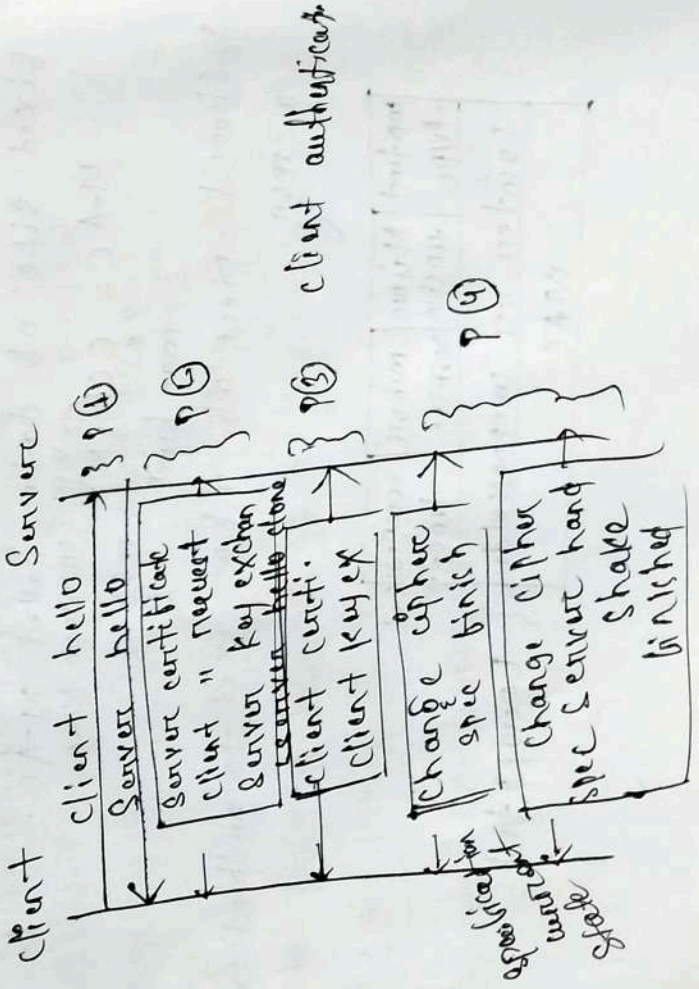 client Server
client hello
Server hello
} P ①
Server certificate
client " request
Server key exchan
server hello done
} P ②
client certi.
client key ex
} P ③ client authenticat
change cipher
spec finish
Change cipher
spec Server hand
shake
finished
} P ④
specification
current
State